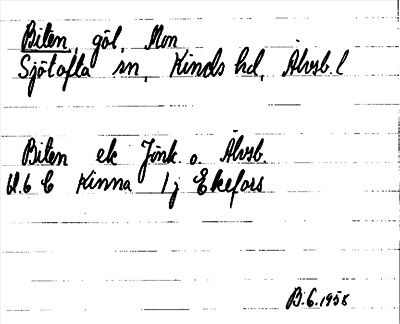 Biten, göl, Mon
Sjötofta sn, Kinds hd, Älvsb. l
Biten ek Jönk. o. Älvsb.
U.6 C Kinna 1 j Ekefors
B.G. 1958